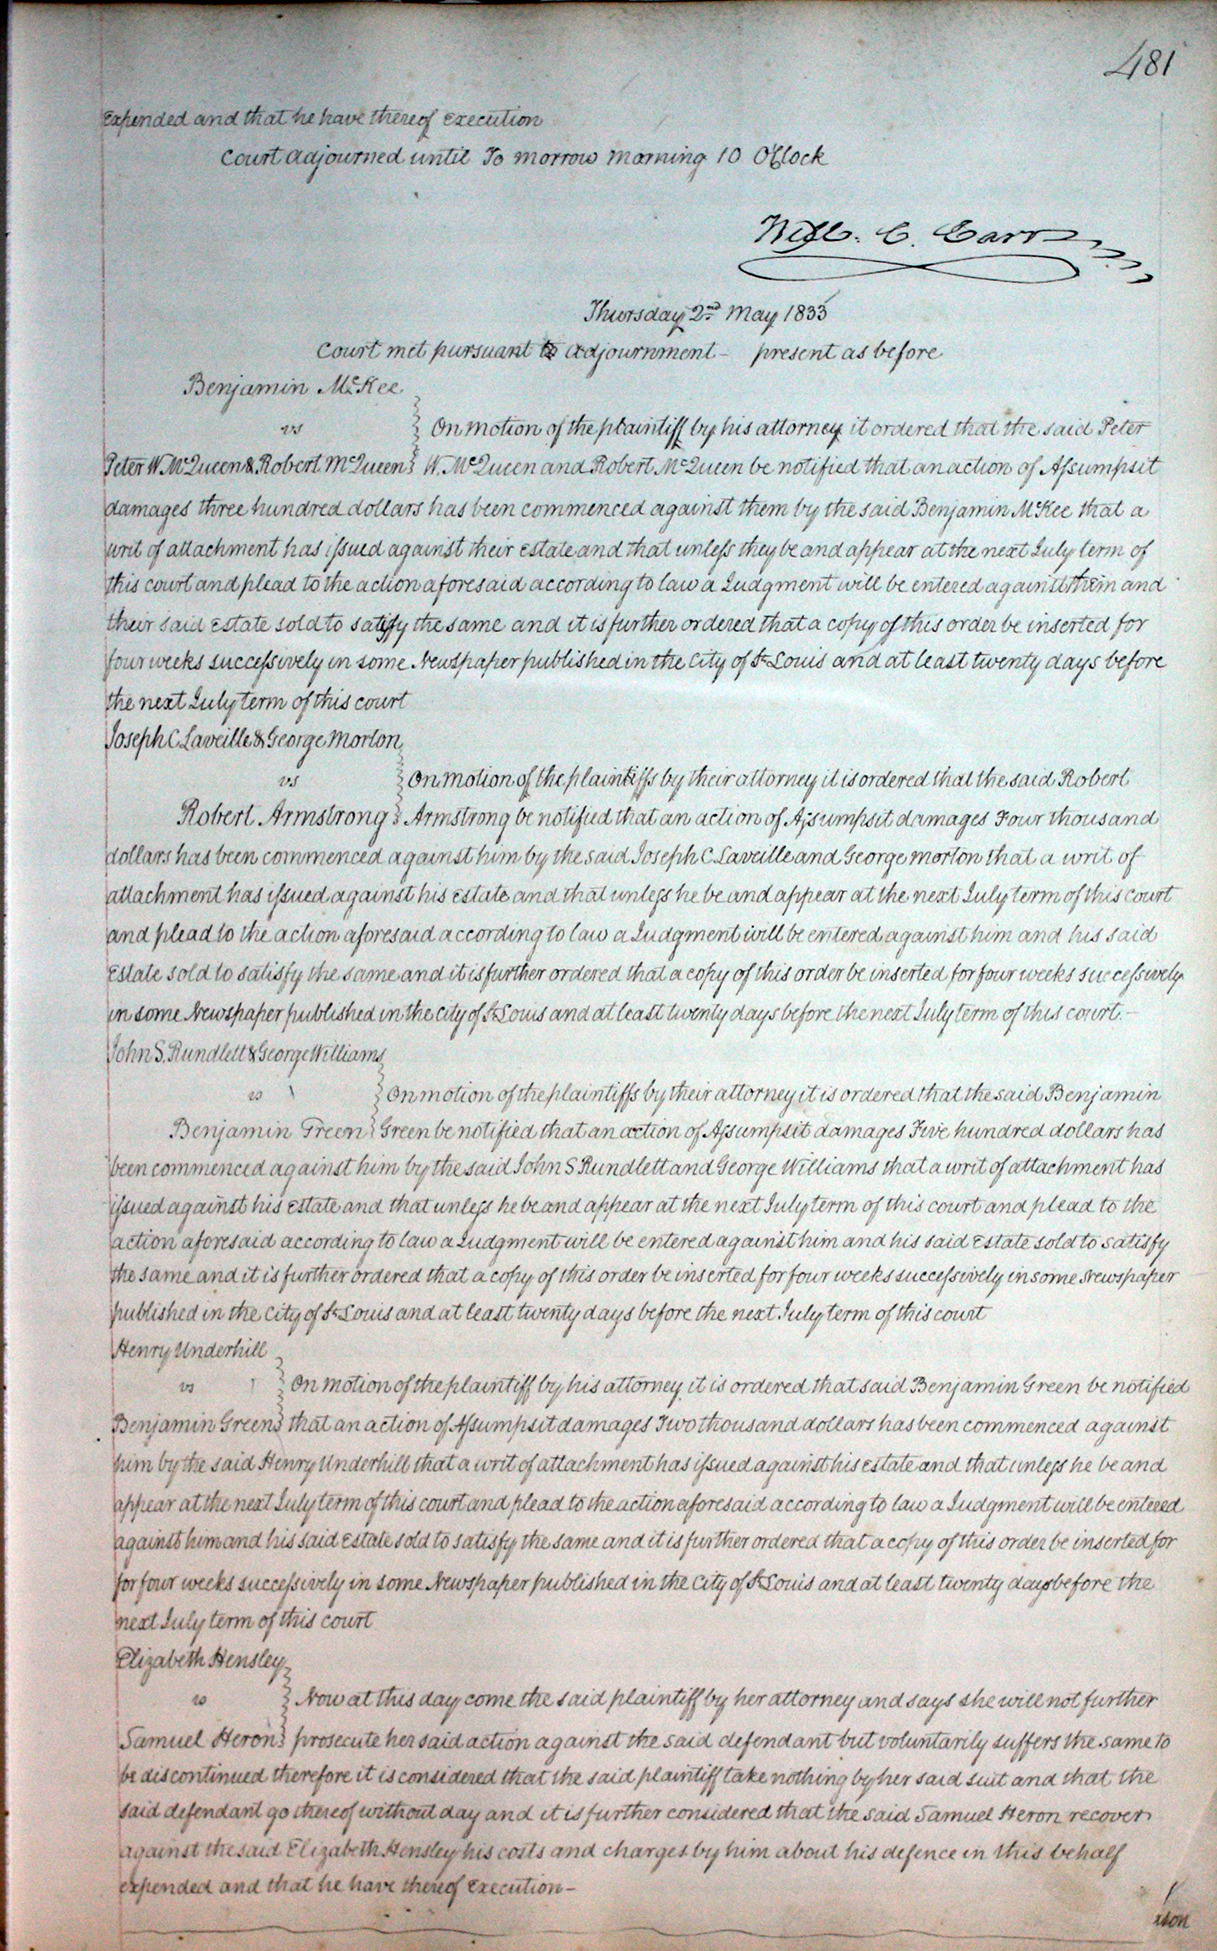 481
Expended and that he have thereof Execution
Court adjourned until To morrow morning 10 OClock
Will. C. Carr
Thursday 2nd May 1833
Court met pursuant to adjournment - present as before
Benjamin McKee
vs } On motion of the plaintiff by his attorney it ordered that the said Peter
Peter W. McQueen & Robert McQueen } W. McQueen and Robert McQueen be notified that an action of Assumpsit
damages three hundred dollars has been commenced against them by the said Benjamin McKee that a
writ of attachment has issued against their Estate and that unless they be and appear at the next July term of
this court and plead to the action aforesaid according to law a Judgment will be entered against them and
their said Estate sold to satisfy the same and it is further ordered that a copy of this order be inserted for
four weeks successively in some Newspaper published in the City of St Louis and at least twenty days before
the next July term of this court
Joseph C Laveille & George Morton
vs } On motion of the plaintiffs by their attorney it is ordered that the said Robert
Robert Armstrong } Armstrong be notified that an action of Assumpsit damages Four thousand
dollars has been commenced against him by the said Joseph C Laveille and George Morton that a writ of
attachment has issued against his Estate and that unless he be and appear at the next July term of this court
and plead to the action aforesaid according to law a Judgment will be entered against him and his said
Estate sold to satisfy the same and it is further ordered that a copy of this order be inserted for four weeks successively
in some Newspaper published in the city of St Louis and at least twenty days before the next July term of this court. -
John S. Rundlett & George Williams
vs } On motion of the plaintiffs by their attorney it is ordered that the said Benjamin
Benjamin Green } Green be notified that an action of Assumpsit damages Five hundred dollars has
been commenced against him by the said John S Rundlett and George Williams that a writ of attachment has
issued against his Estate and that unless he be and appear at the next July term of this court and plead to the
action aforesaid according to law a Judgment will be entered against him and his said Estate sold to satisfy
the same and it is further ordered that a copy of this order be inserted for four weeks successively in some Newspaper
published in the City of St Louis and at least twenty days before the next July term of this court
Henry Underhill
vs } On motion of the plaintiff by his attorney it is ordered that said Benjamin Green be notified
Benjamin Green } that an action of Assumpsit damages Two thousand dollars has been commenced against
him by the said Henry Underhill that a writ of attachment has issued against his Estate and that unless he be and
appear at the next July term of this court and plead to the action aforesaid according to law a Judgment will be entered
against him and his said Estate sold to satisfy the same and it is further ordered that a copy of this order be inserted for
for four weeks successively in some Newspaper published in the City of St Louis and at least twenty days before the
next July term of this court
Elizabeth Hensley
vs } Now at this day come the said plaintiff by her attorney and says she will not further
Samuel Heron } prosecute her said action against the said defendant but voluntarily suffers the same to
be discontinued therefore it is considered that the said plaintiff take nothing by her said suit and that the
said defendant go thereof without day and it is further considered that the said Samuel Heron recover
against the said Elizabeth Hensley his costs and charges by him about his defence in this behalf
expended and that he have thereof Execution -